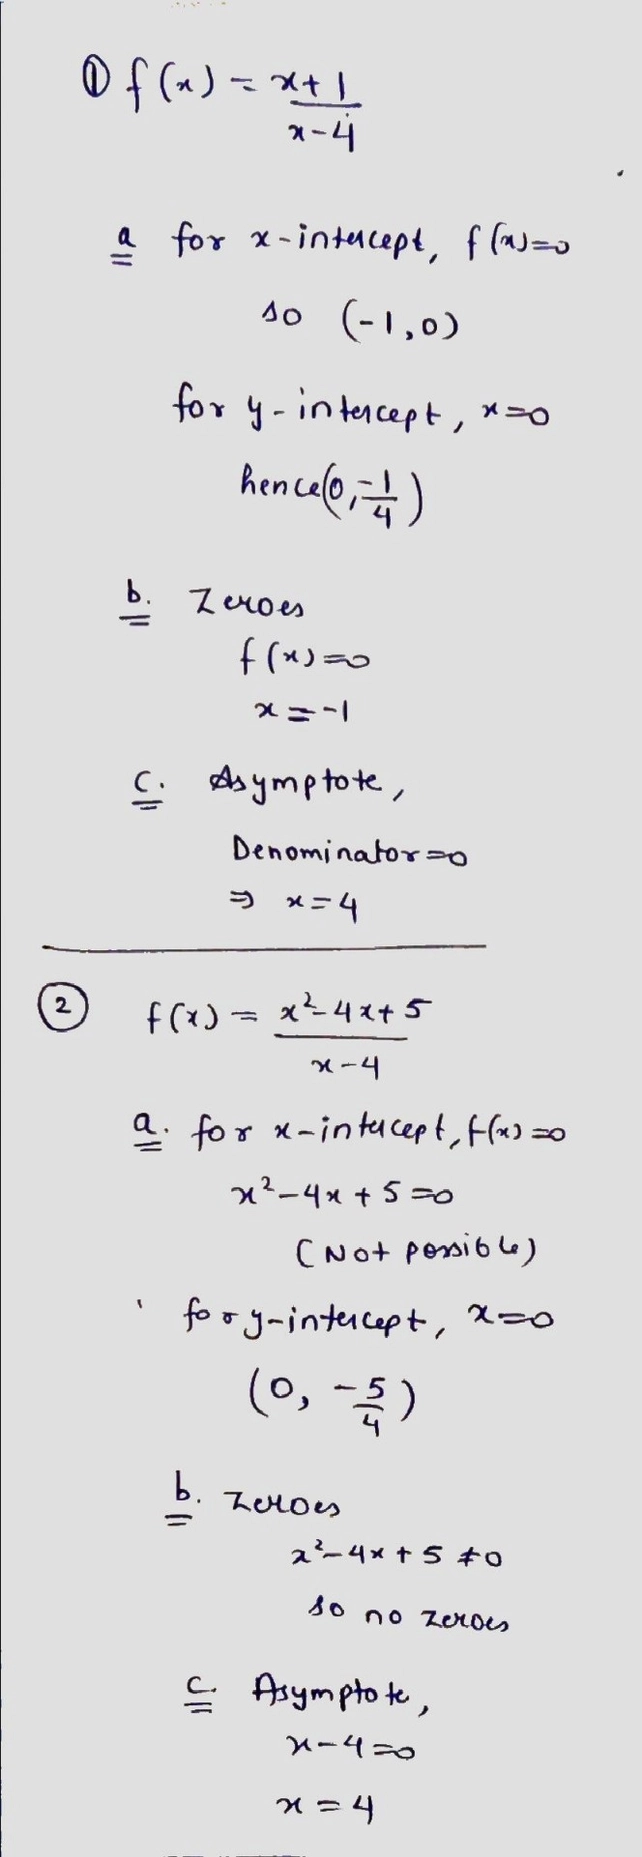 ① f(x) = x+1
x-4
a for x-intercept, f(x)=0
so (-1,0)
for y-intercept, x=0
hence(0, -1/4)
b. Zeroes
f(x)=0
x=-1
c. Asymptote,
Denominator=0
⇒ x=4
② f(x) = x²-4x+5
x-4
a. for x-intercept, f(x)=0
x²-4x+5=0
(Not possible)
for y-intercept, x=0
(0, -5/4)
b. Zeroes
x²-4x+5≠0
so no zeroes
c. Asymptote,
x-4=0
x=4